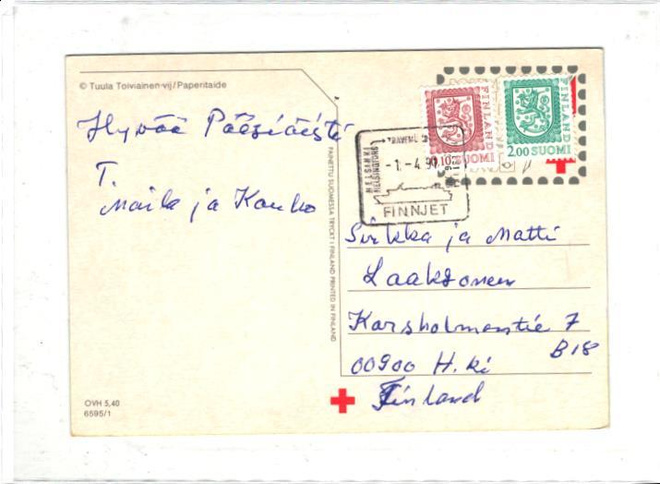 © Tuula Toiviainen-vij/Paperitaide
Hyvää Pääsiäistä
T.
Maila ja Kauko
PAINETTU SUOMESSA TRYCKT I FINLAND PRINTED IN FINLAND
OVH 5,40
6595/1
FINLAND
0.10
SUOMI
FINLAND
2.00 SUOMI
HELSINKI
HELSINGFORS
-1.-4.9
FINNJET
Sirkka ja Matti
Laaksonen
Karsholmantie 7
B 18
00900 H.ki
Finland